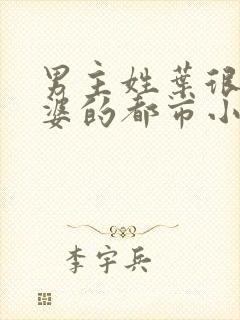 男主姓葉很
婆的都市小
李宇兵